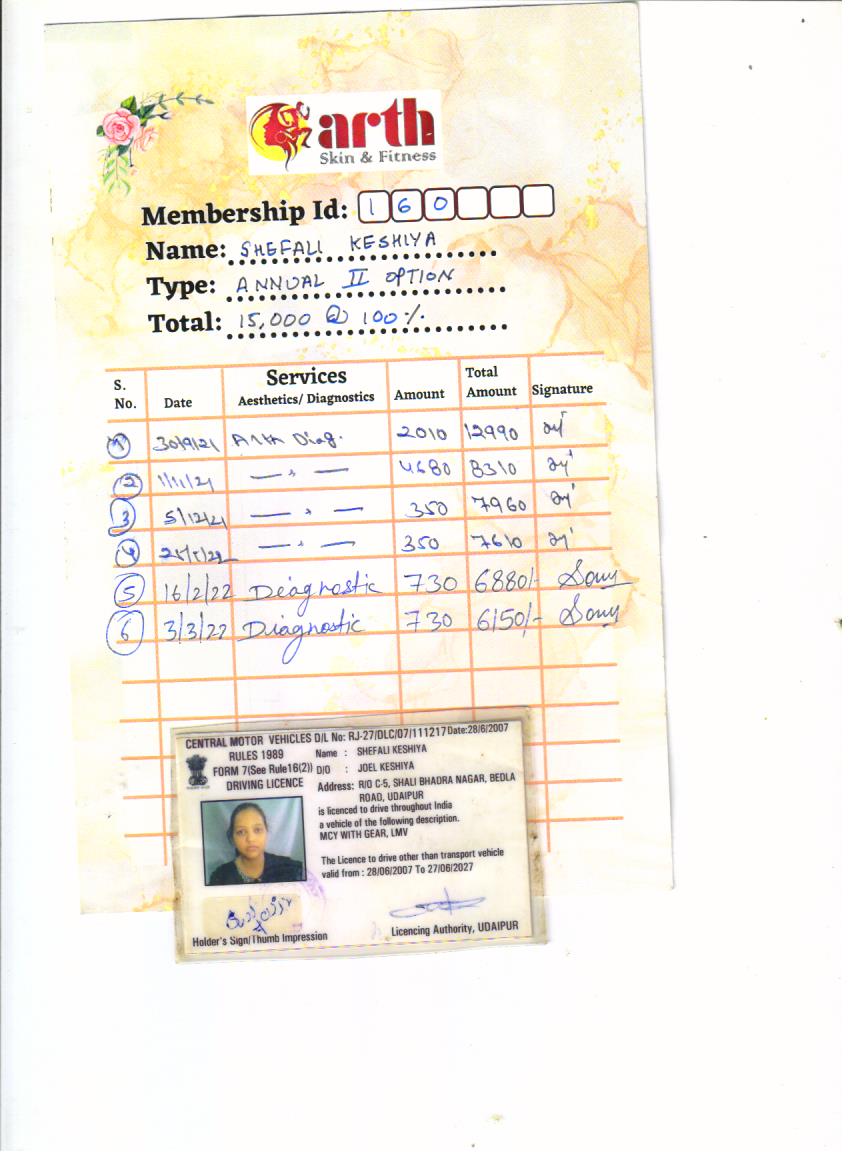 arth
Skin & Fitness
Membership Id: 160
Name: SHEFALI KESHIYA
Type: ANNUAL II OPTION
Total: 15,000 @ 100%.
S. No. Date Services Aesthetics/ Diagnostics Amount Total Amount Signature
1 30/9/21 Arth Diag. 2010 12990
2 1/11/21 — " — 4680 8310
3 5/12/21 — " — 350 7960
4 — " — 350 7610
5 16/2/22 Deagnostic 730 6880/- Sony
6 3/3/22 Diagnostic 730 6150/- Sony
CENTRAL MOTOR VEHICLES D/L No: RJ-27/DLC/07/111217 Date:28/6/2007
RULES 1989 Name : SHEFALI KESHIYA
FORM 7(See Rule16(2)) D/O : JOEL KESHIYA
DRIVING LICENCE Address: R/O C-5, SHALI BHADRA NAGAR, BEDLA
ROAD, UDAIPUR
is licenced to drive throughout India
a vehicle of the following description.
MCY WITH GEAR, LMV
The Licence to drive other than transport vehicle
valid from : 28/06/2007 To 27/06/2027
Holder's Sign/Thumb Impression Licencing Authority, UDAIPUR